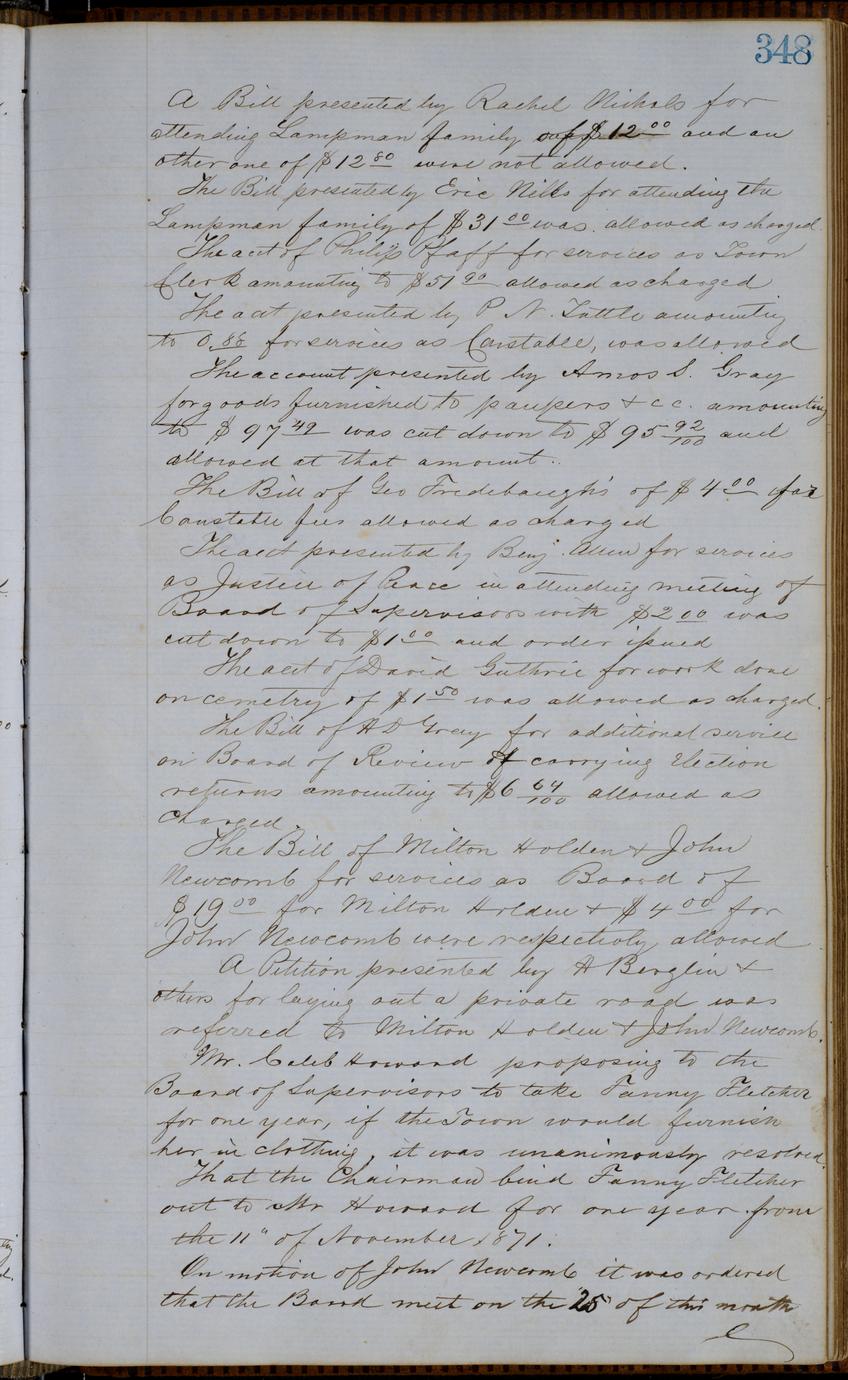 348
A Bill presented by Rachel Nichols for
attending Lampman family of $12 00 and an
other one of $12 80 were not allowed.
The Bill presented by Eric Nills for attending the
Lampman family of $31 00 was allowed as charged.
The act of Philip Pfaff for services as Town
Clerk amounting to $51 90 allowed as charged
The act presented by P. N. Tuttle amounting
to 0.88 for services as Constable, was allowed
The account presented by Amos S. Gray
for goods furnished to paupers + c c. amounting
to $97 49 was cut down to $95 92/100 and
allowed at that amount.
The Bill of Geo Fredebaugh's of $4 00 for
Constable fees allowed as charged
The act presented by Benj. Allen for services
as Justice of Peace in attending meeting of
Board of Supervisors with $2 00 was
cut down to $1 00 and order issued
The act of David Guthrie for work done
on cemetry of $1 50 was allowed as charged.
The Bill of A D Gray for additional service
on Board of Review & carrying Election
returns amounting to $6 64/100 allowed as
charged.
The Bill of Milton Holden + John
Newcomb for services as Board of
$19 00 for Milton Holden + $4 00 for
John Newcomb were respectivly allowed
A Petition presented by A Berglin +
others for laying out a private road was
referred to Milton Holden + John Newcomb.
Mr. Caleb Howard proposing to the
Board of Supervisors to take Fanny Fletcher
for one year, if the Town would furnish
her in clothing, it was unanimously resolved.
That the Chairman bind Fanny Fletcher
out to Mr Howard for one year from
the 11" of November 1871.
On motion of John Newcomb it was ordered
that the Board meet on the 25 of this month